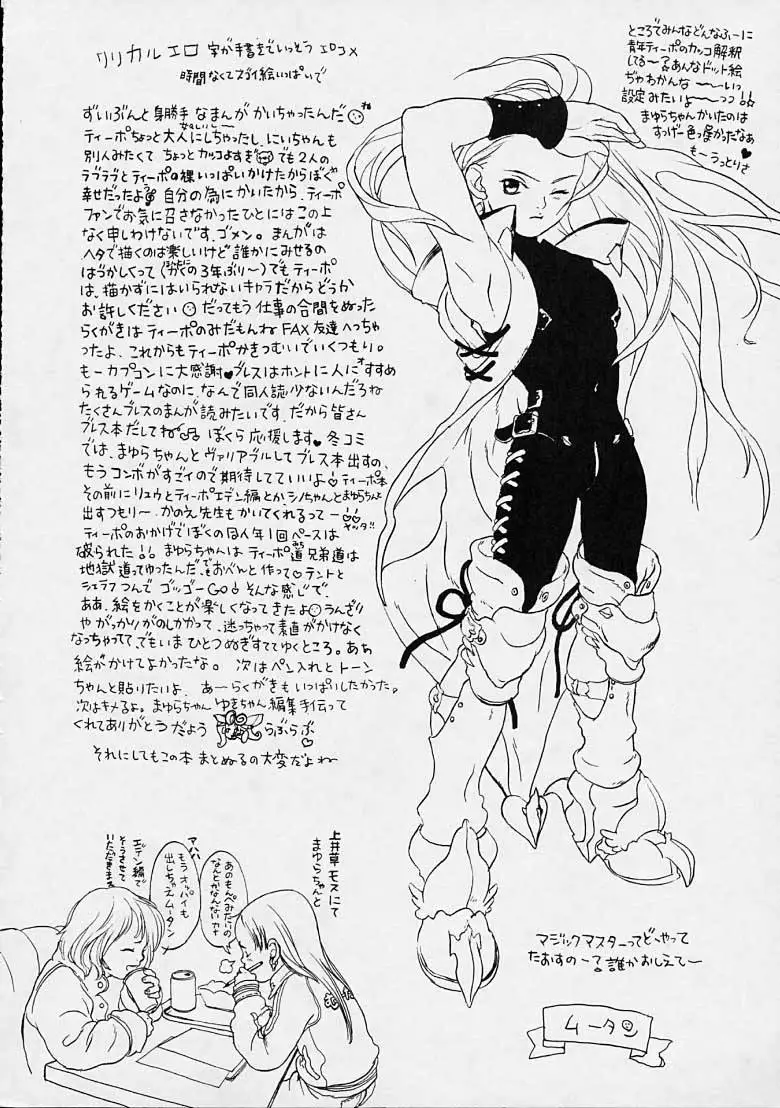 リリカルエロ 字が手書きでいっとう エロコメ
時間なくてズゴイ絵いっぱいで
ずいぶんと身勝手なまんがかいちゃったんだ
ティーポちょっと大人にしちゃったし、にいちゃんも
別人みたくて ちょっとカッコよすぎ でも2人の
ラブラブとティーポの裸いっぱいかけたからぼく
幸せだったよう 自分の為にかいたから、ティーポ
ファンでお気に召さなかったひとにはこの上
なく申しわけないです、ゴメン。まんがは
ヘタで描くのは楽しいけど誰かにみせるの
はづかしくって(ぼくの3年ぶり〜)でもティーポ
は、描かずにはいられないキャラだからどうか
お許しください だってもう仕事の合間をぬった
らくがきは ティーポのみだもんね FAX友達へっちゃ
ったよ、これからもティーポかきつむいでいくつもり。
もーカプコンに大感謝♥ブレスはホントに人にすすめ
られるゲームなのに、なんで同人誌少ないんだろね
たくさんブレスのまんが読みたいです、だから皆さん
ブレス本だしてね ぼくら応援します♥冬コミ
では、まゆらちゃんとヴァリアブルしてブレス本出すの、
もうコンボがすごイので期待してていいよ ティーポ本
その前にリュウとティーポエデン編とかシノちゃんとまゆらちゃんと
出すつもり〜 かのえ先生もかいてくれるって ヤッタ!!
ティーポのおかげでぼくの同人年1回ペースは
破られた!! まゆらちゃんは ティーポ道兄弟道は
地獄道ってゆったんだ、でもおべんと作って♡テントと
シェラフつんで ゴッゴーGo! そんな感じで
ああ、絵をかくことが楽しくなってきたよ うんざり
や がっかりがのしかかって、迷っちゃって素直がかけなく
なっちゃってて、でもいま ひとつぬぎすててゆくところ。ああ
絵がかけてよかったな。 次はペン入れとトーン
ちゃんと貼りたいよ、あーらくがきもいっぱいしたかった。
次はキメるよ。まゆらちゃん ゆきちゃん 編集手伝って
くれてありがとうだよう らぶらぶ♡
それにしてもこの本 まとめるの大変だよね
ところでみんなどんなふーに
青年ティーポのカッコ解釈
してる〜?あんなドット絵
ぢゃわかんな〜〜いっ
設定みたいよ〜〜っっ!!
まゆらちゃんかいたのは
すっげー色っぽかったなぁ
も〜うっとりさ♥
上井草モスにて
まゆらちゃんと
あのもんぺみたいの
なんとかなんないカナ
アハハ
もうオッパイも
出しちゃえムータン
エデン編で
そうさせて
いただきます
マジックマスターってどーやって
たおすのー?誰かおしえてー
ムータン